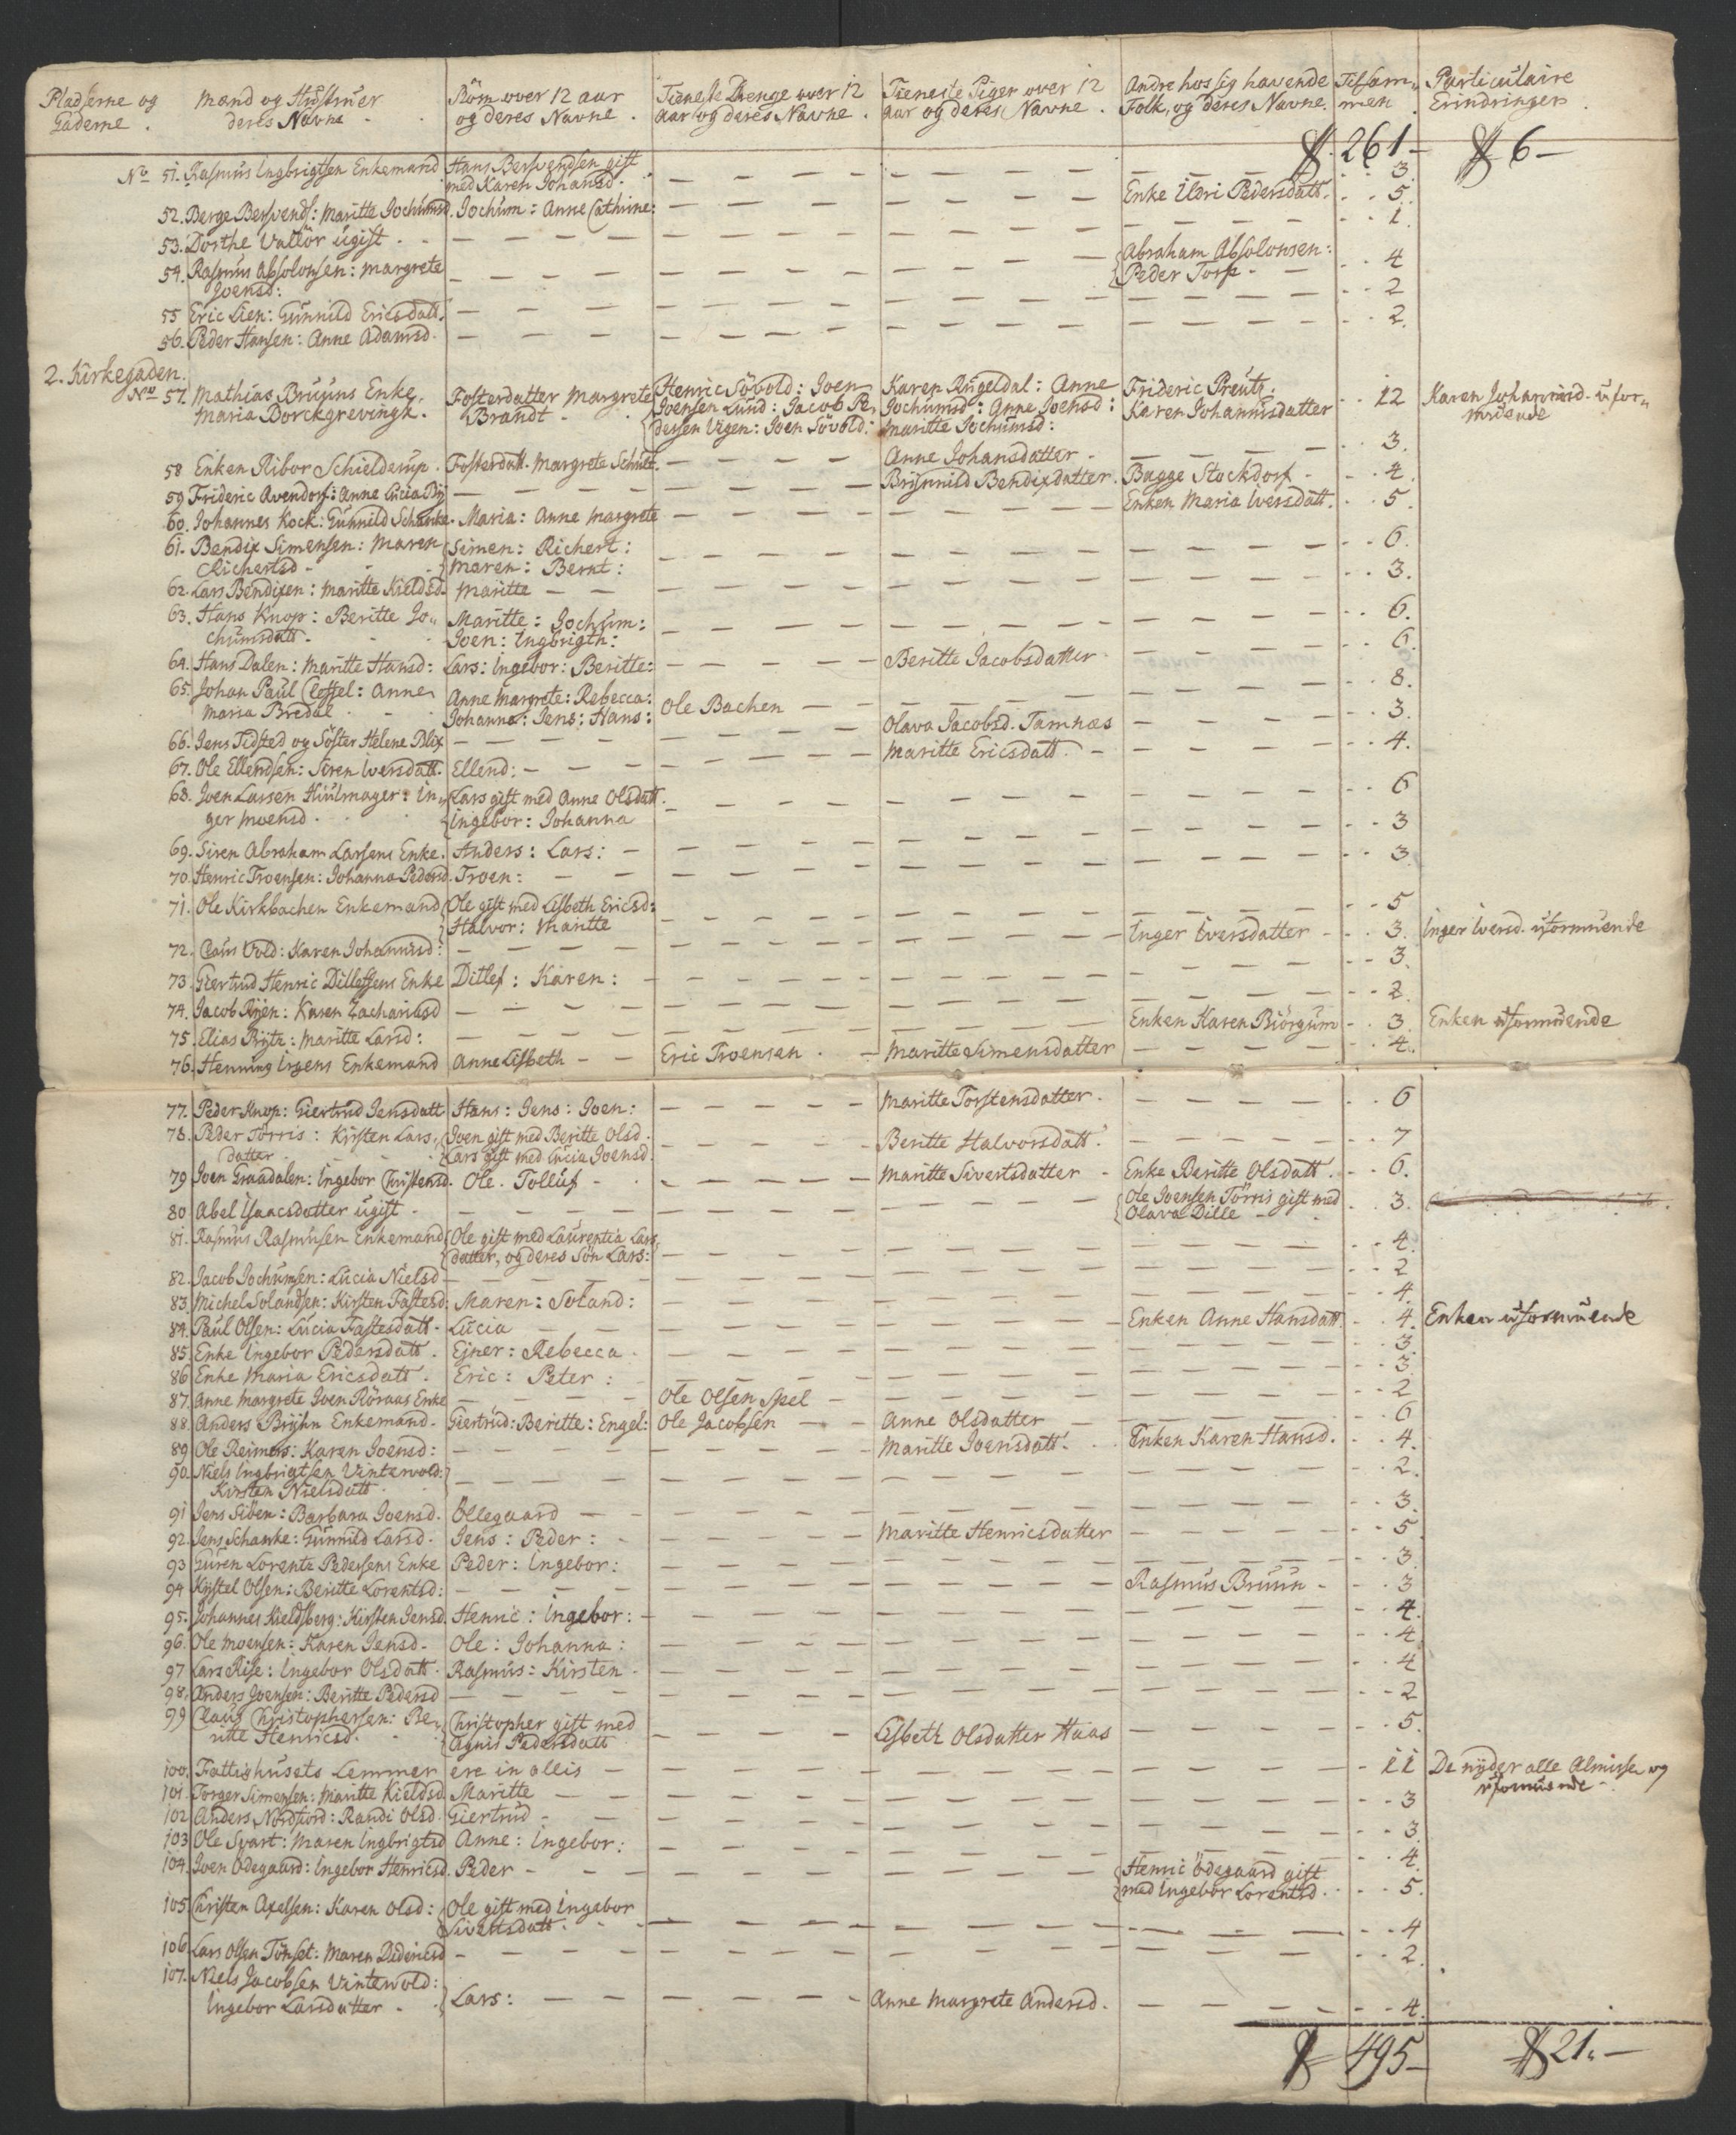 Pladserne og Gaderne . Mænd og Hustruer deres Navne . Börn over 12 aar og deres Navne . Tieneste Drenge over 12 aar og deres Navne . Tieneste Piger over 12 aar og deres Navne . Andre hos sig havende Folk, og deres Navne. Tilsam„ men Particulaire Erindringer .
261 – 6 –
No 51. Rasmus Ingbrigtsen Enkemand Hans Bersvendsen gift – – – 3.
med Karen Johansd.
52. Berge Bersvends: Maritte Jochumsd. Jochum: Anne Cathrine: – – Enke Udri Pedersdatt. 5.
53. Dorthe Vallör ugift . – – – – 1.
54. Rasmus Absolonsen: Margrete – – – Abraham Absolonsen: 4
Joensd: Peder Torp –
55 Eric Lien: Gunnild Ericsdatt. – – – – 2
56. Peder Hansen: Anne Adamsd. – – – – 2.
2. Kirkegaden.
No 57. Mathias Bruuns Enke, Fosterdatter Margrete Henric Sövold: Joen Karen Rugeldal: Anne Frideric Preutz. 12 Karen Johannisd. ufor„
Maria Borckgrevingk. Brandt – Joensen Lund: Jacob Pe„ Jochumsd: Anne Joensd: Karen Johannisdatter muende
dersen Vigen: Joen Sövold: Maritte Jochumsd:
58 Enken Ribor Schielderup. Fosterdatt. Margrete Schult. – Anne Johansdatter – – 3.
59 Frideric Avendorf: Anne Lucia Bij – – Brynnild Bendixdatter. Bagge Stockdorf – 4.
60. Johannes Kock: Gunnild Schanke. Maria: Anne Margrete – – Enken Maria Iversdatt. 5.
61. Bendix Simensen: Maren Simen: Richert: – – – 6.
Richertsd – Maren: Bernt:
62. Lars Bendixen: Maritte Kieldsd. Maritte – – – – 3.
63. Hans Knop: Beritte Jo„ Maritte: Jochum: – – – 6.
chumsdatt. Joen: Ingbrigth:
64. Hans Dalen: Maritte Hansd: Lars: Ingebor: Beritte: – Beritte Jacobsdatter – 6.
65. Johan Paul Cleffel: Anne Anne Margrete: Rebecca: Ole Bachen – – – 8.
Maria Bredal – Johanna: Jens: Hans:
66. Jens Tidsted og Söster Helene Blix – – Olava Jacobsd. Tamnæs – 3.
67. Ole Ellendsen: Siren Iversdatt. Ellend: – – Maritte Ericsdatt. – 4.
68. Joen Larsen Hiulmager: In„ Lars gift med Anne Olsdatt. – – – 6
ger Moensd. Ingebor: Johanna
69. Siren Abraham Larsens Enke. Anders: Lars: – – – 3
70. Henric Troensen: Johanna Pedersd. Troen: – – – 3
71. Ole Kirkbachen Enkemand Ole gift med Lisbeth Ericsd: – – – 5
Halvor: Maritte
72. Claus Vold: Karen Johannisd: – – – Inger Iversdatter – 3. Inger Iversd. uformuende
73. Giertrud Henric Dillessens Enke Ditlef: Karen: – – – 3.
74. Jacob Ryen: Karen Zachariasd – – – – 2.
75. Elias Prytz: Maritte Larsd: – – – Enken Karen Biörgum 3. Enken uformuende
76. Henning Irgens Enkemand Anne Lisbeth – Eric Troensen – Maritte Simensdatter – 4.
77. Peder Knop: Giertrud Jensdatt Hans: Jens: Joen: – Maritte Torstensdatter. – 6
78. Peder Törris: Kirsten Lars„ Joen gift med Beritte Olsd. – Beritte Halvorsdatt. – 7
datter – Lars gift med Lucia Joensd.
79 Joen Graadalen: Ingebor Christensd. Ole. Tolluf – – Maritte Sivertsdatter – Enke Beritte Olsdatt. 6.
80 Abel Isaacsdatter ugift . – – – Ole Joensen Törris gift med 3.
Olava Dille –
81. Rasmus Rasmusen Enkemand Ole gift med Laurentia Lars„ – – – 4.
datter, og deres Sön Lars:
82. Jacob Jochumsen: Lucia Nielsd – – – – 2
83. Michel Solandsen: Kirsten Fastesd. Maren: Soland: – – – 4.
84. Paul Olsen: Lucia Fastesdatt. Lucia – – – Enken Anne Hansdatt. 4. Enken uformuende
85. Enke Ingebor Pedersdatt. Ejner: Rebecca. – – – 3
86 Enke Maria Ericsdatt. Eric: Peter: – – – 3
87. Anne Margrete Joen Röraas Enke – Ole Olsen Spel – – – 2
88. Anders Bryhn Enkemand. Giertrud: Beritte: Engel: Ole Jacobsen – Anne Olsdatter – – 6
89 Ole Reimers: Karen Joensd: – – Maritte Joensdatt. Enken Karen Hansd. 4.
90. Niels Ingbrigtsen Vintervold: – – – – 2.
Kirsten Nielsdatt
91 Jens Siöen: Barbara Joensd. Öllegaard – – – – 3.
92. Jens Schanke: Gunnild Larsd. Jens: Peder: – – Maritte Henricsdatter – 5
93 Guren Lorentz Pedersens Enke Peder: Ingebor: – – – 3.
94 Kystel Olsen: Beritte Lorentsd: – – – Rasmus Bruun – 3
95. Johannes Kieldsberg: Kirsten Jensd. Henric: Ingebor: – – – 4.
96. Ole Moensen: Karen Jensd. Ole: Johanna: – – – 4
97 Lars Rise: Ingebor Olsdatt. Rasmus: Kirsten – – – – 4
98. Anders Joensen: Beritte Pedersd – – – – 2
99 Claus Christophersen: Be„ Christopher gift med – Lisbeth Olsdatter Haas 5.
ritte Henricsd. Agnis Pedersdatt
100. Fattighusets Lemmer ere in alles – – – – 11 De nyder alle Almisse og
uformuende –
101. Torger Simensen: Maritte Kieldsd. Maritte – – – – 3
102 Anders Nordfiord: Randi Olsd. Giertrud – – – – 3.
103 Ole Svart: Maren Ingbrigtsd Anne: Ingebor: – – – 4.
104. Joen Ödegaard: Ingebor Henricsd. Peder – – – Henric Ödegaard gift 5.
med Ingebor Lorentsd.
105 Christen Axelsen: Karen Olsd: Ole gift med Ingebor – – – 4
Sivertsdatt.
106 Lars Olsen Tönset: Maren Didericsd – – – – 2.
107. Niels Jacobsen Vintervold: Lars: – – Anne Margrete Andersd. – 4.
Ingebor Larsdatter –
495 – 21. –